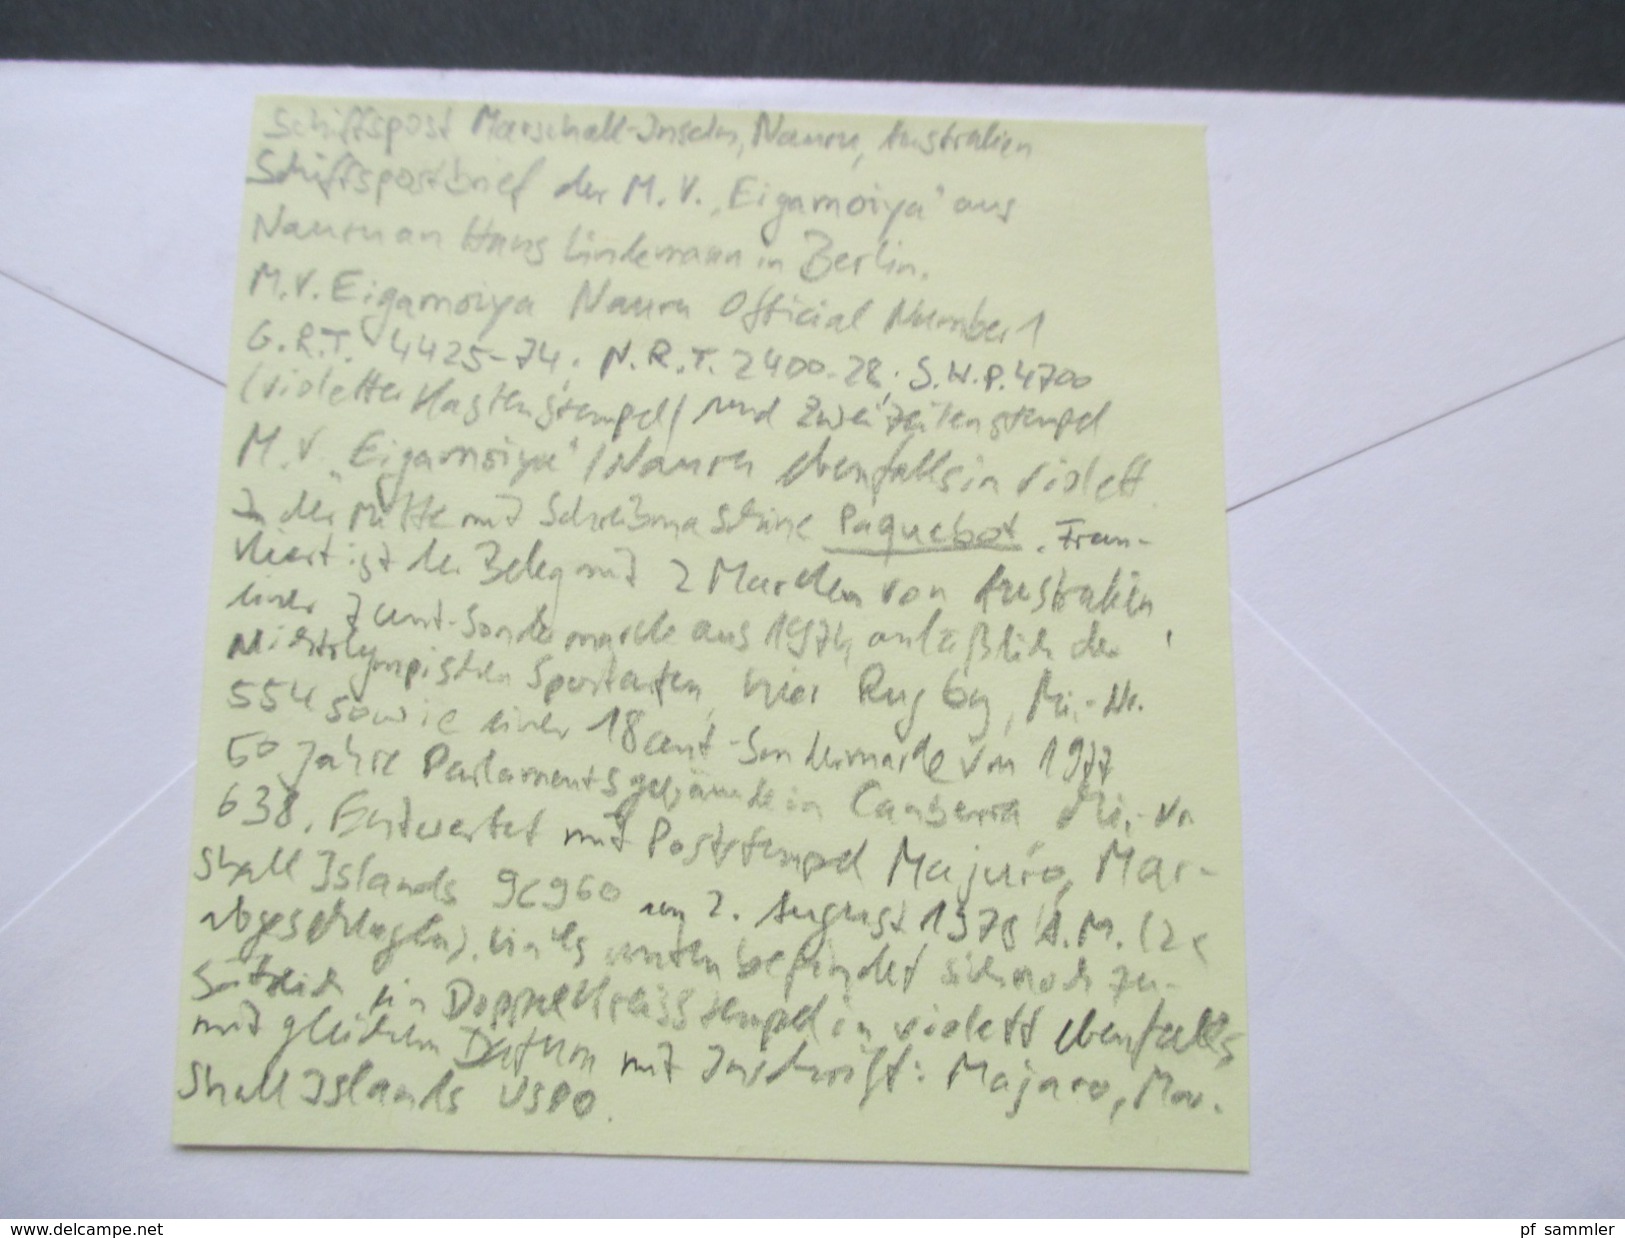 Schiffspost Marschall-Inseln, Nauru, Australien
Schiffspostbrief der M.V. „Eigamoiya" aus
Nauru an Hans Lindemann in Berlin.
M.V. Eigamoiya Nauru Official Number 1
G.R.T. 4425-74. N.R.T. 2400-28. S.H.P. 4700
(violetter Kastenstempel) und Zweizeilenstempel
M.V. „Eigamoiya" / Nauru ebenfalls in violett.
In der Mitte mit Schreibmaschine Paquebot. Fran-
kiert ist der Beleg mit 2 Marken von Australien,
einer 7 cent-Sondermarke aus 1974 anläßlich der
Nichtolympischen Sportarten, hier Rugby, Mi.-Nr.
554 sowie einer 18 cent-Sondermarke von 1977
50 Jahre Parlamentsgebäude in Canberra Mi.-Nr
638. Entwertet mit Poststempel Majuro, Mar-
shall Islands 96960 am 2. August 1978 A.M. (2x
abgeschlagen). Links unten befindet sich noch zu-
sätzlich ein Doppelkreisstempel in violett ebenfalls
mit gleichem Datum mit Inschrift: Majuro, Mar.
shall Islands USPO.
www.delcampe.net
pf_sammler